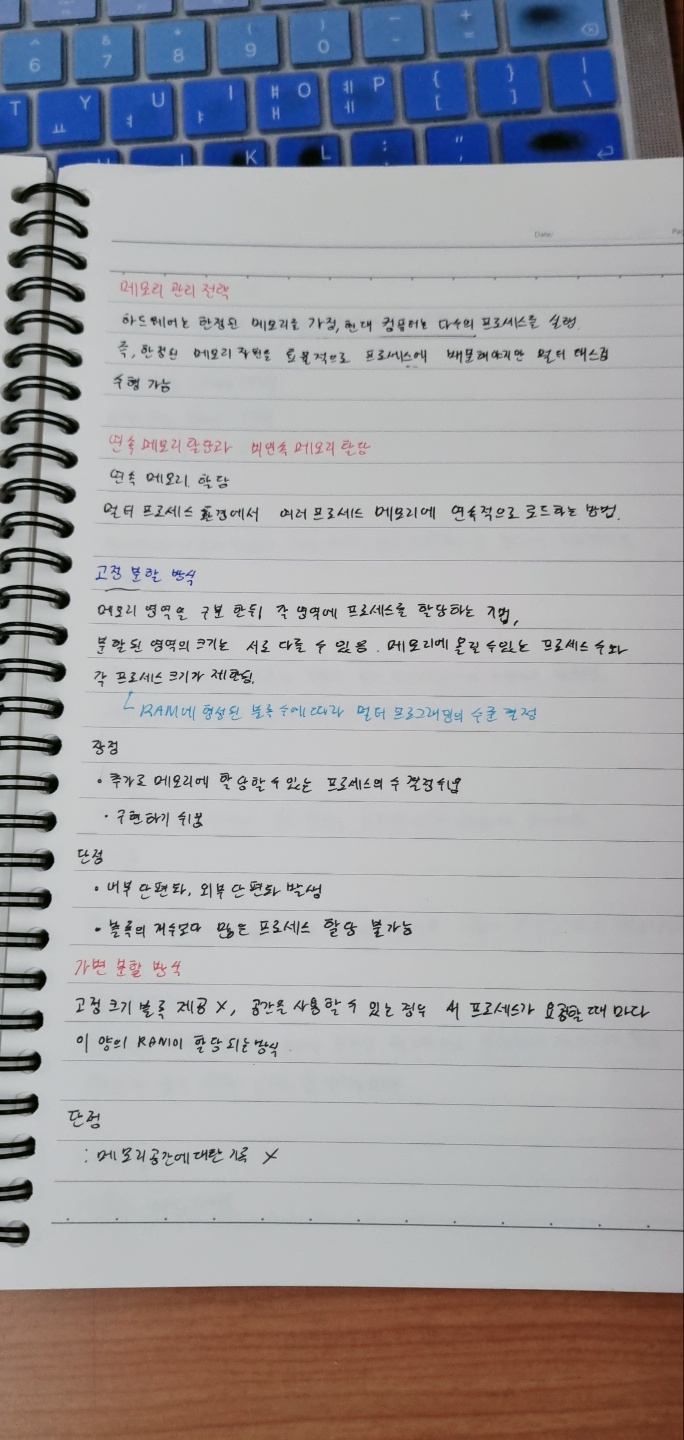 ^ & * ( ) _ +
6 7 8 9 0 - =
T Y ㅛ U ㅕ I ㅑ O ㅒ ㅐ P ㅖ ㅔ { [ } ] | \
K L : ; " '
Date:
메모리 관리 전략
하드웨어는 한정된 메모리를 가짐, 현대 컴퓨터는 다수의 프로세스를 실행.
즉, 한정된 메모리 자원을 효율적으로 프로세스에 배분해야지만 멀티 태스킹
수행 가능
연속 메모리 할당과 비연속 메모리 할당
연속 메모리 할당
멀티 프로세스 환경에서 여러 프로세스 메모리에 연속적으로 로드하는 방법.
고정 분할 방식
메모리 영역을 구분 한뒤 각 영역에 프로세스를 할당하는 기법,
분할된 영역의 크기는 서로 다를 수 있음. 메모리에 올릴 수있는 프로세스 수와
각 프로세스 크기가 제한됨.
RAM에 형성된 블록 수에 따라 멀티 프로그래밍의 수준 결정
장점
• 추가로 메모리에 할당할 수 있는 프로세스의 수 결정쉬움
• 구현하기 쉬움
단점
• 내부 단편화, 외부 단편화 발생
• 블록의 개수보다 많은 프로세스 할당 불가능
가변 분할 방식
고정 크기 블록 제공 X, 공간을 사용할 수 있는 경우 새 프로세스가 요청할 때 마다
이 양의 RAM이 할당 되는 방식.
단점
: 메모리공간에 대한 기록 X